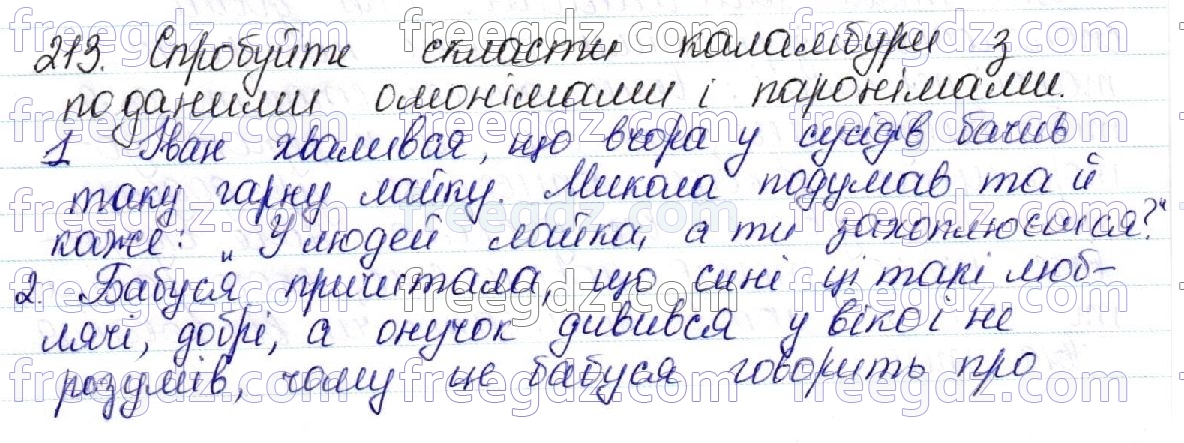 213. Спробуйте скласти каламбури з
поданими омонімами і паронімами.
1 Іван хваливая, що вчора у сусідів бачив
таку гарну лайку. Микола подумав та й
каже: „У людей лайка, а ти захоплюєшся?"
2. Бабуся причитала, що сині ці такі люб-
лячі, добрі, а онучок дивився у вікої не
розумів, чому це бабуся говорить про
freegdz.com